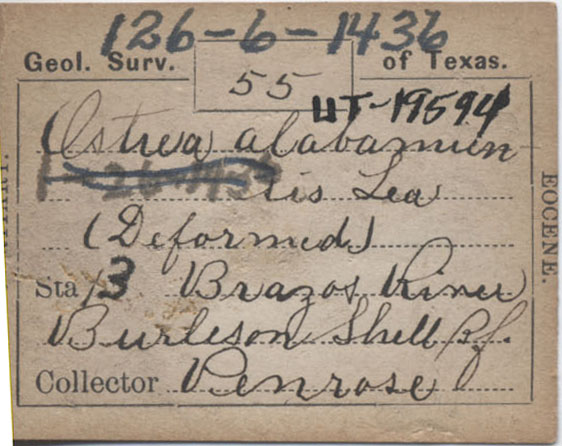 126-6-1436
Geol. Surv. of Texas.
55
UT-19594
Ostrea alabamien
sis Lea
(Deformed)
Sta 3 Brazos River
Burleson Shell Bf.
Collector Penrose
EOCENE.